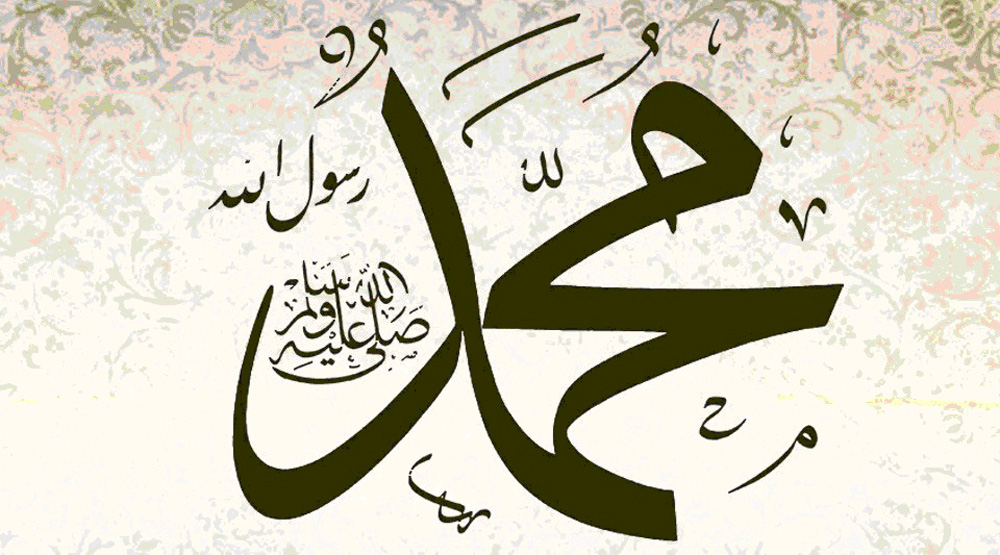 محمد
لله
رسول الله
صلى الله عليه وسلم
ح
م